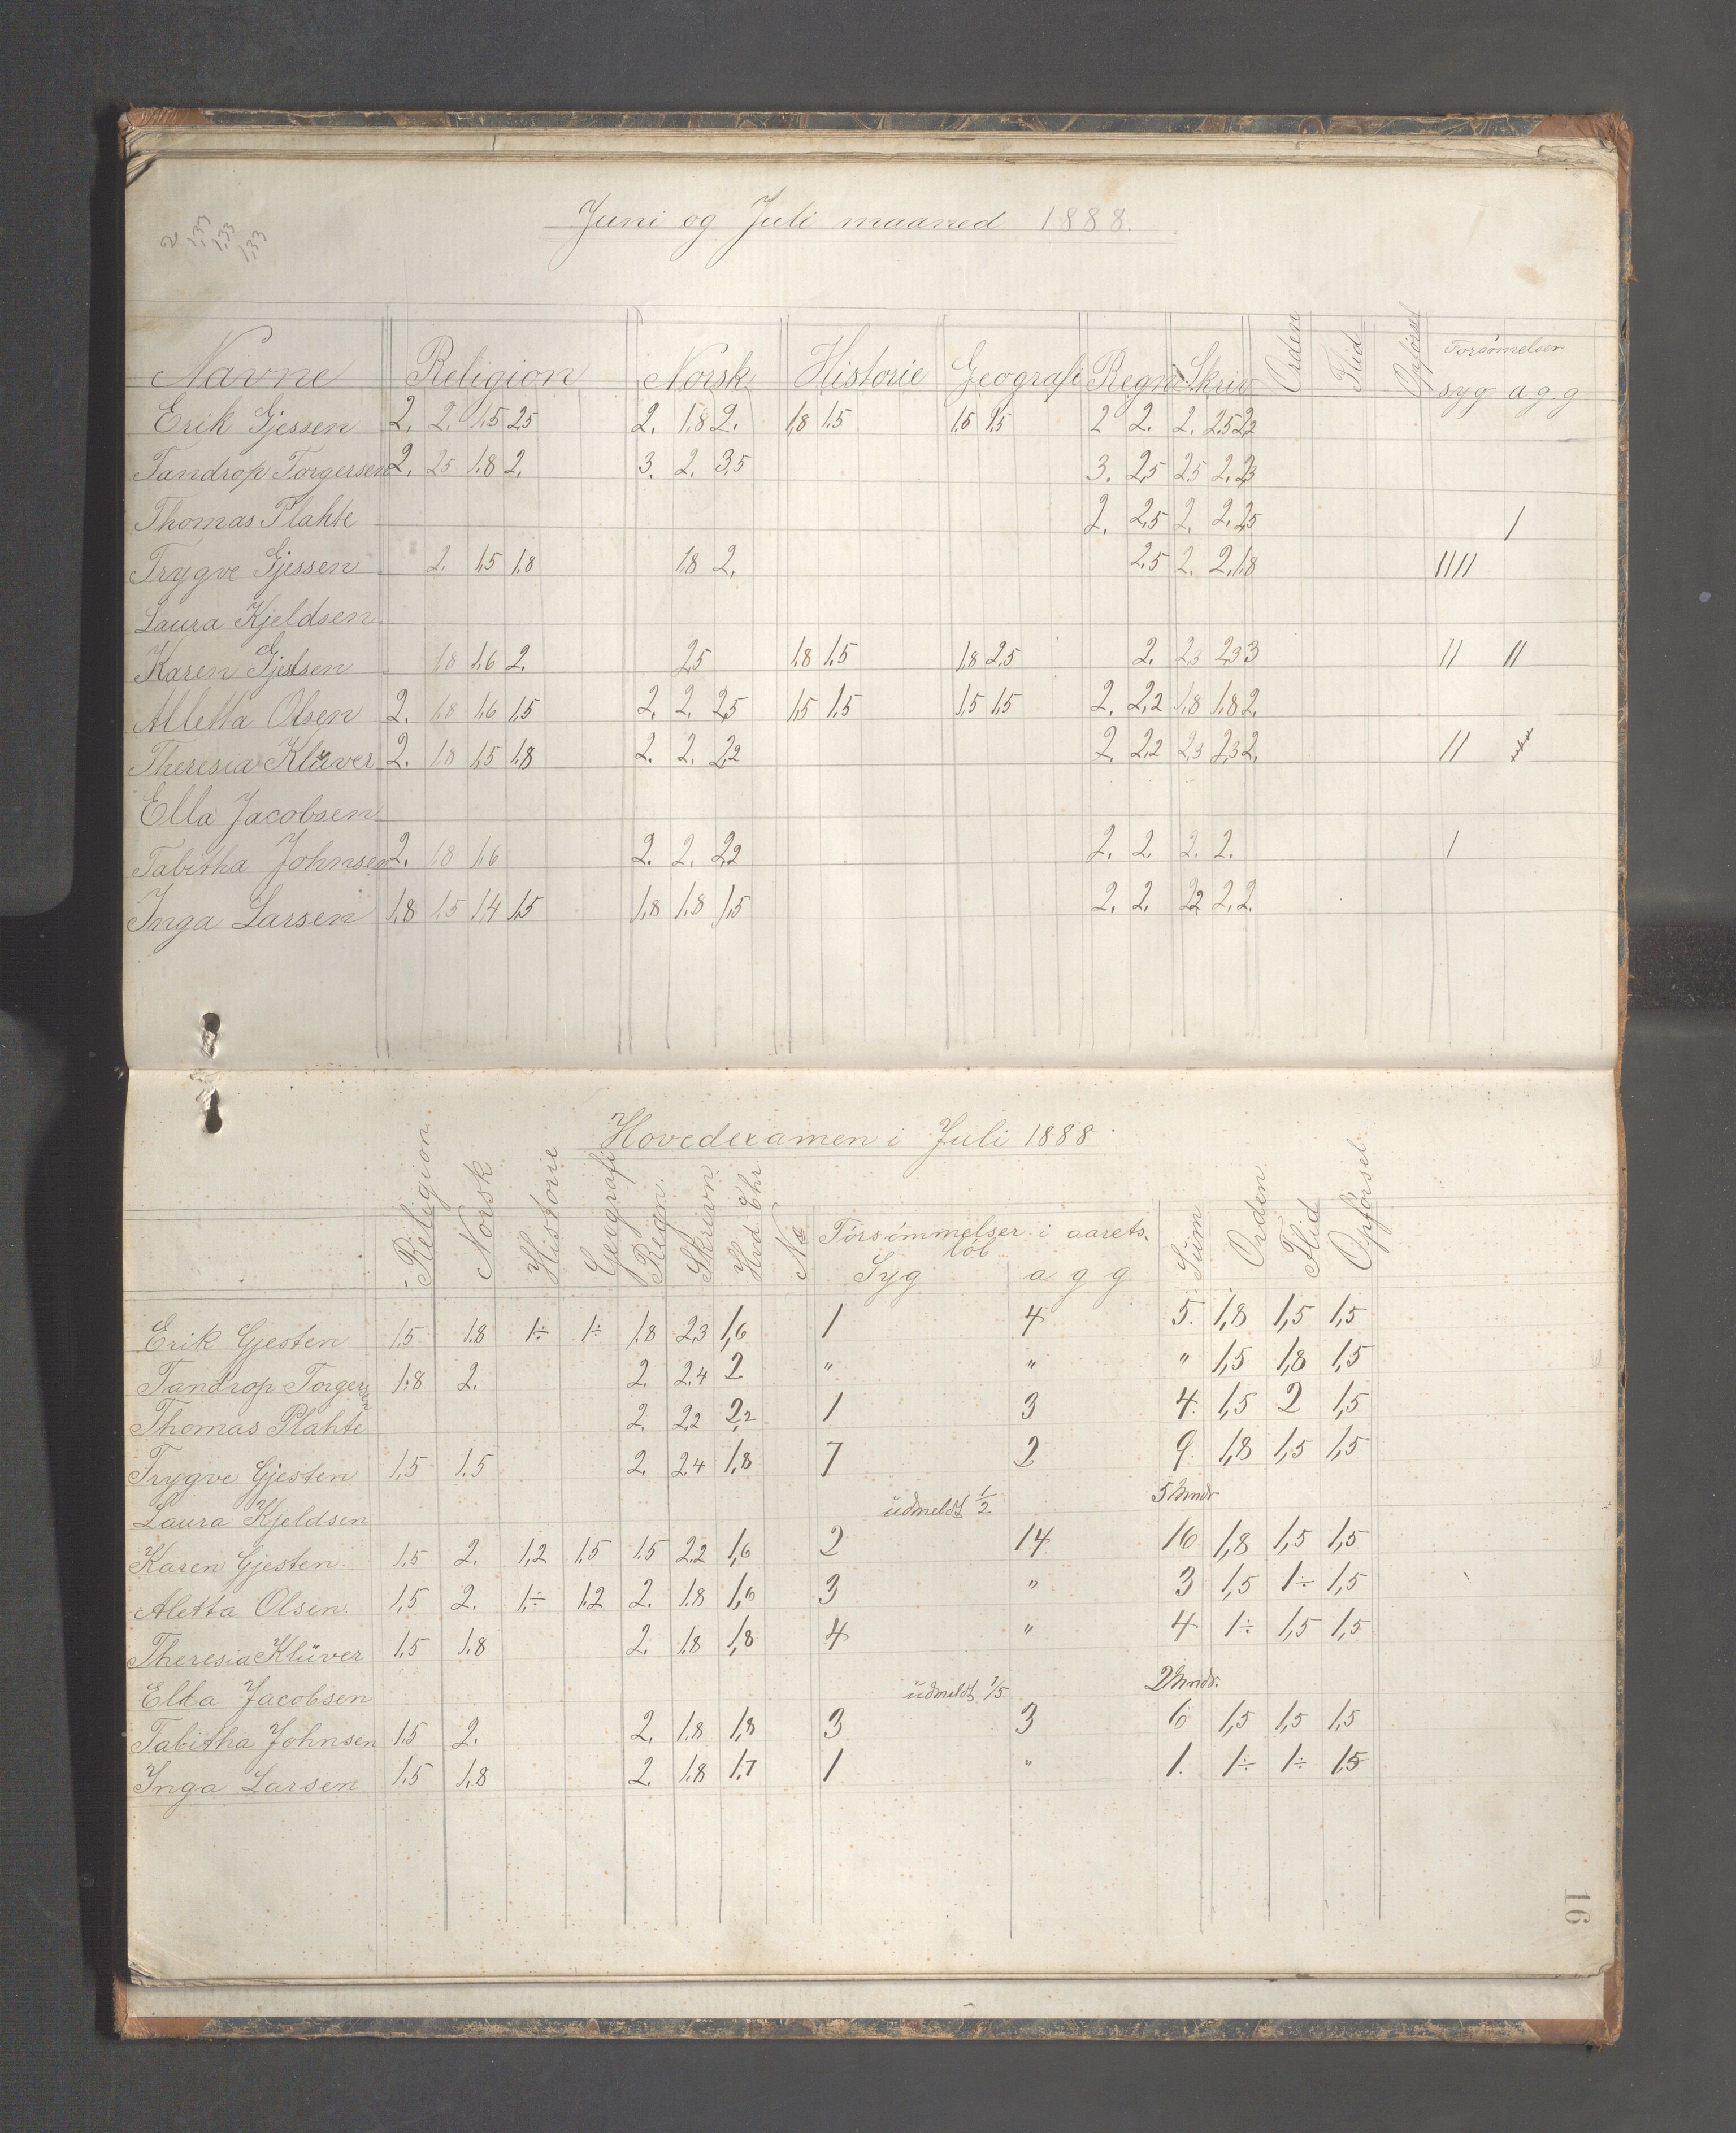 Juni og Juli maaned 1888.
2 1,33 1,33 1,33
Navne Religion Norsk Historie Geografi Regn Skriv Orden Flid Opførsel Forsømelser syg a g g
Erik Gjessen 2. 2. 1,5 2,5 2. 1,8 2. 1,8 1,5 1,5 1,5 2 2. 2. 2,5 2,2
Tandrop Torgersen 2. 2,5 1,8 2. 3. 2. 3,5 3. 2,5 2,5 2. 2,3
Thomas Plahte 2. 2,5 2. 2. 2,5 /
Trygve Gjessen 2. 1,5 1,8 1,8 2. 2,5 2. 2. 1,8 ////
Laura Kjeldsen
Karen Gjessen 1,8 1,6 2. 2,5 1,8 1,5 1,8 2,5 2. 2,3 2,3 3 // //
Alletta Olsen 2. 1,8 1,6 1,5 2. 2. 2,5 1,5 1,5 1,5 1,5 2. 2,2 1,8 1,8 2.
Theresia Klüver 2. 1,8 1,5 1,8 2. 2. 2,2 2. 2,2 2,3 2,3 2. //
Ella Jacobsen
Tabitha Johnsen 2. 1,8 1,6 2. 2. 2,2 2. 2. 2. 2. /
Inga Larsen 1,8 1,5 1,4 1,5 1,8 1,8 1,5 2. 2. 2,2 2. 2.
Hovedexamen i Juli 1888.
Religion Norsk Historie Geografi Regn. Skrivn. Hvd Chr. Forsømmelser i aarets løb Syg a g g Süm Orden Flid Opførsel
Erik Gjesten 1,5 1,8 1÷ 1÷ 1,8 2,3 1,6 1 4 5. 1,8 1,5 1,5
Tandrop Torgersen 1,8 2. 2. 2,4 2 " " " 1,5 1,8 1,5
Thomas Plahte 2. 2,2 2,2 1 3 4. 1,5 2 1,5
Trygve Gjesten 1,5 1,5 2. 2,4 1,8 7 2 9. 1,8 1,5 1,5
Laura Kjeldsen üdmeldt 1/2 5 hmdr
Karen Gjesten. 1,5 2. 1,2 1,5 1,5 2,2 1,6 2 14 16 1,8 1,5 1,5
Aletta Olsen. 1,5 2. 1,÷ 1,2 2. 1,8 1,6 3 " 3 1,5 1÷ 1,5
Theresia Klüver 1,5 1,8 2. 1,8 1,8 4 " 4 1÷ 1,5 1,5
Ella Jacobsen üdmeldt 1/5 2 hmdr.
Tabitha Johnsen 1,5 2. 2. 1,8 1,8 3 3 6 1,5 1,5 1,5
Inga Larsen 1,5 1,8 2. 1,8 1,7 1 " 1. 1÷ 1÷ 1,5
16